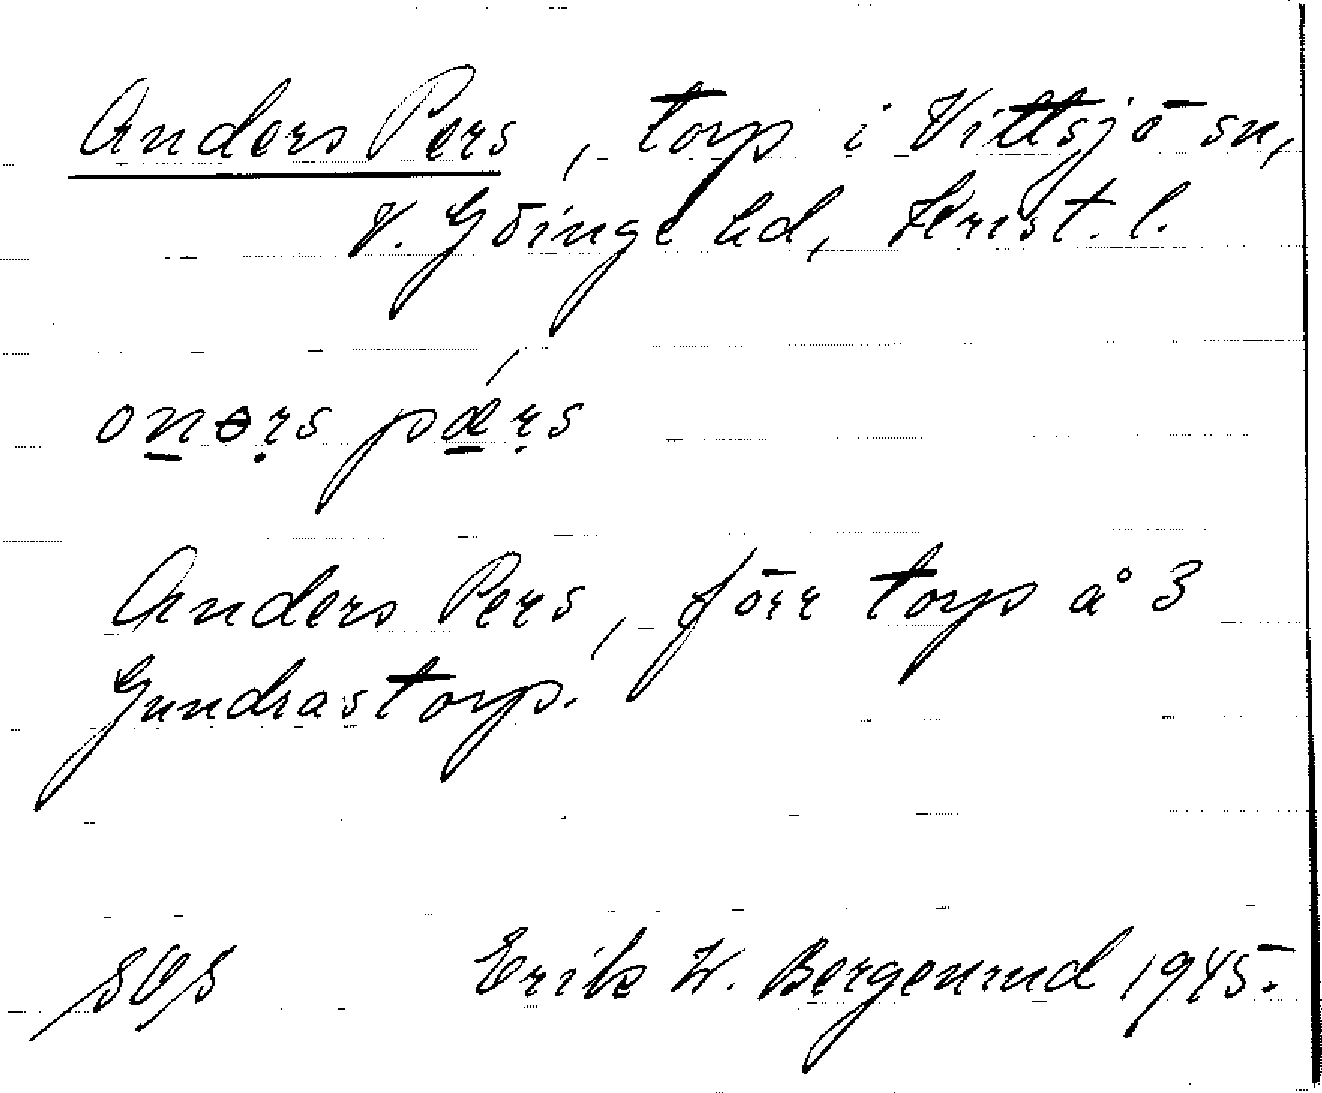 Anders Pers, torp i Vittsjö sn,
V. Göinge hd, Krist. l.
onərs pǽrs
Anders Pers, förr torp å 3
Gundrastorp.
Erik W. Bergenund 1945.